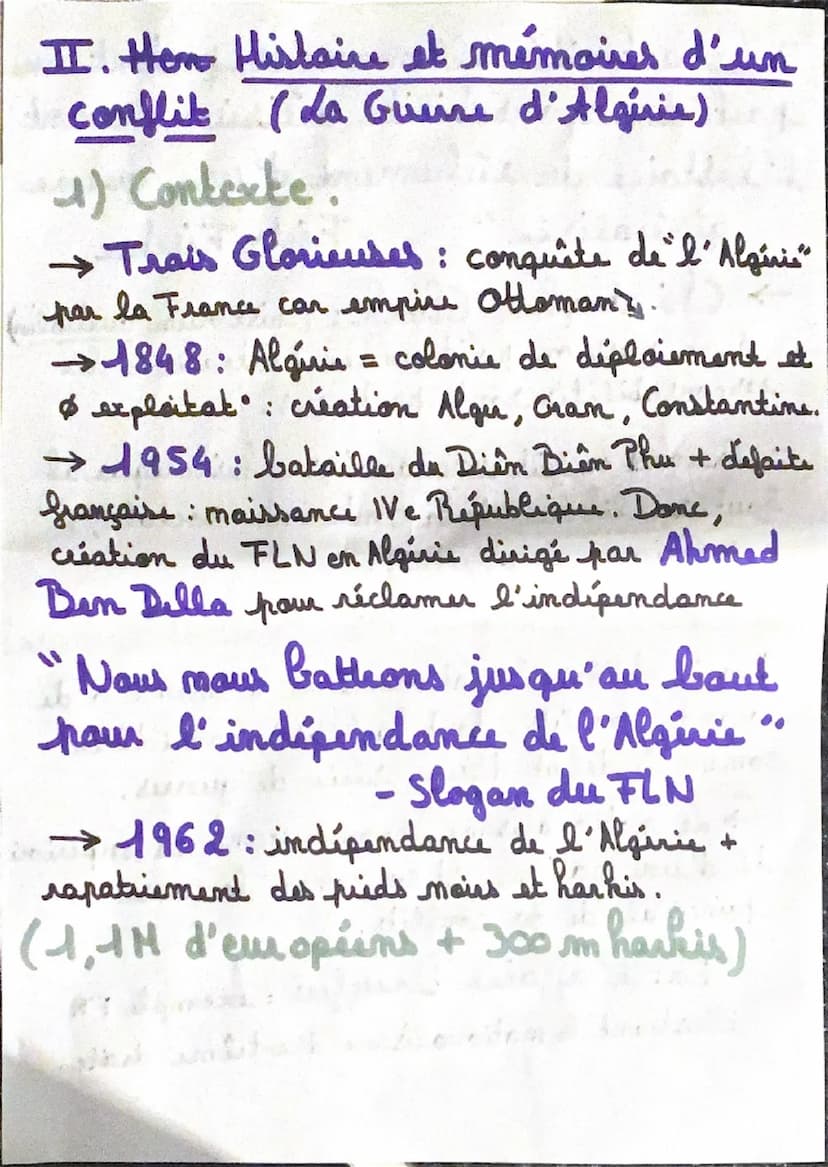 II. Hen Histoire et mémoires d'un
conflit (La Guerre d'Algérie)
1) Contexte.
→ Trois Glorieuses : conquête de "l'Algérie"
par la France car empire Ottoman ↘.
→ 1848 : Algérie = colonie de déploiement et
ø exploitat° : création Alger, Oran, Constantine.
→ 1954 : bataille de Diên Biên Phu + défaite
française : naissance IVe République. Donc,
création du FLN en Algérie dirigé par Ahmed
Ben Della pour réclamer l'indépendance
"Nous nous battrons jusqu'au bout
pour l'indépendance de l'Algérie"
- Slogan du FLN
→ 1962 : indépendance de l'Algérie +
rapatriement des pieds noirs et harkis.
(1,1M d'européens + 300 m harkis)